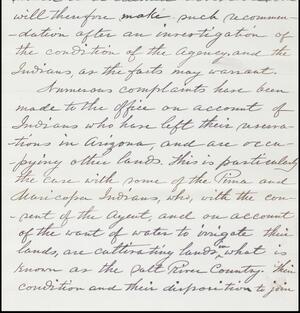 will therefore make such recommen-
dation after an investigation of
the condition of the Agency, and the
Indians, as the facts may warrant.
Numerous complaints have been
made to the Office on account of
Indians who have left their reserva-
tions in Arizona, and are occu-
pying other lands. This is particularly
the case with some of the Pima and
Maricopa Indians, who, with the con-
sent of the Agent, and on account
of the want of water to irrigate their
lands, are cultivating lands in what is
known as the Salt River Country. Their
condition and their disposition to join